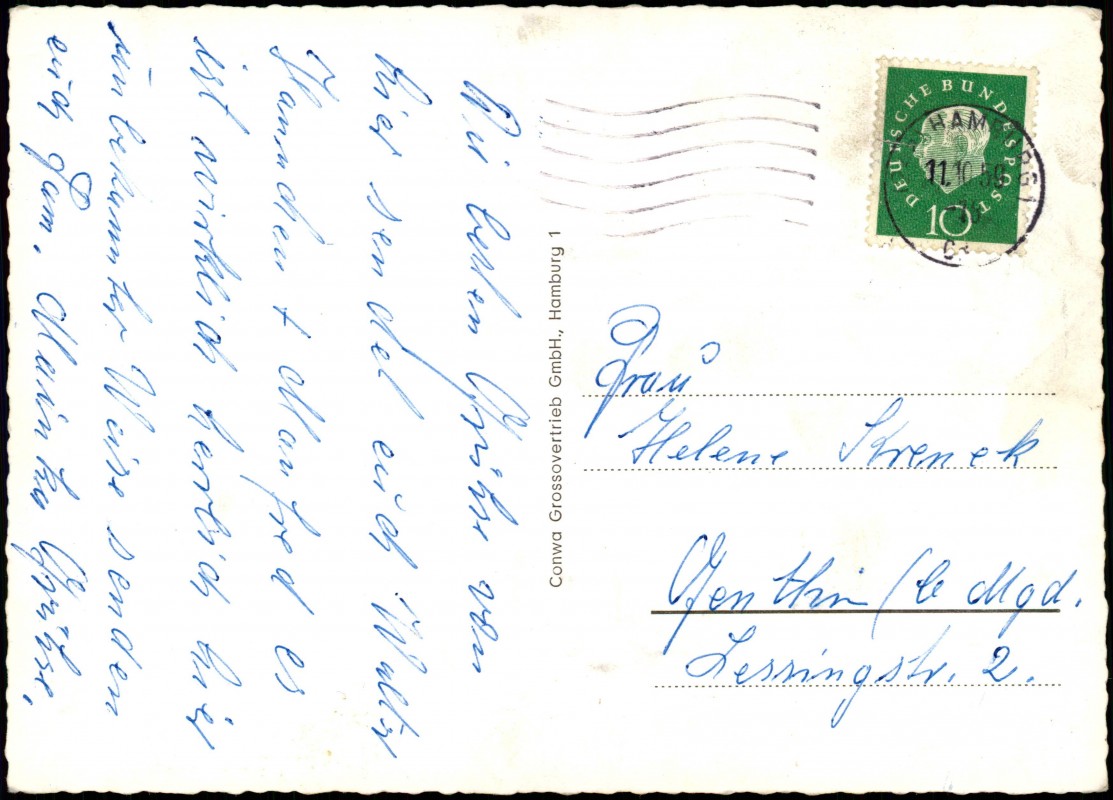 Die besten Grüße von
hier sendet euch Walter
Hannchen + Manfred es
ist wirklich herlich hir
unbekannter Weise senden
euch Fam. Grüße.
Conwa Grossovertrieb GmbH., Hamburg 1
DEUTSCHE BUNDESPOST
10
HAMBURG 1
11.10.59
Frau
Helene Kreneck
Genthin / b Mgd.
Lessingstr. 2.